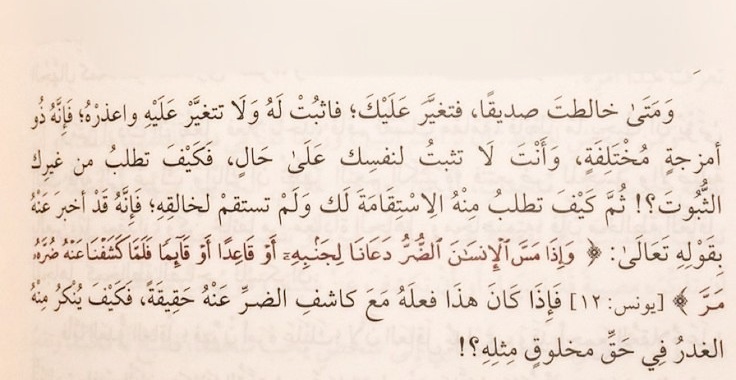 وَمَتَىٰ خالطتَ صديقًا، فتغيَّرَ عَلَيْكَ؛ فاثبُتْ لَهُ وَلَا تتغيَّرْ عَلَيْهِ واعذرْهُ؛ فَإِنَّهُ ذُو
أمزجةٍ مُخْتَلِفَةٍ، وَأَنْتَ لَا تثبتُ لنفسِك عَلَىٰ حَالٍ، فَكَيْفَ تطلبُ من غيرِك
الثُّبُوتَ؟! ثُمَّ كَيْفَ تطلبُ مِنْهُ الِاسْتِقَامَةَ لَك وَلَمْ تستقمْ لخالقِهِ؛ فَإِنَّهُ قَدْ أخبرَ عَنْهُ
بِقَوْلِهِ تَعَالَىٰ: ﴿ وَإِذَا مَسَّ ٱلْإِنسَٰنَ ٱلضُّرُّ دَعَانَا لِجَنۢبِهِۦٓ أَوْ قَاعِدًا أَوْ قَآئِمًا فَلَمَّا كَشَفْنَا عَنْهُ ضُرَّهُۥ
مَرَّ ﴾ [يونس: ١٢] فَإِذَا كَانَ هذَا فعلَهُ مَعَ كاشفِ الضرِّ عَنْهُ حَقِيقَةً، فَكَيْفَ يُنكَرُ مِنْهُ
الغدرُ فِي حَقِّ مخلوقٍ مِثلِهِ؟!